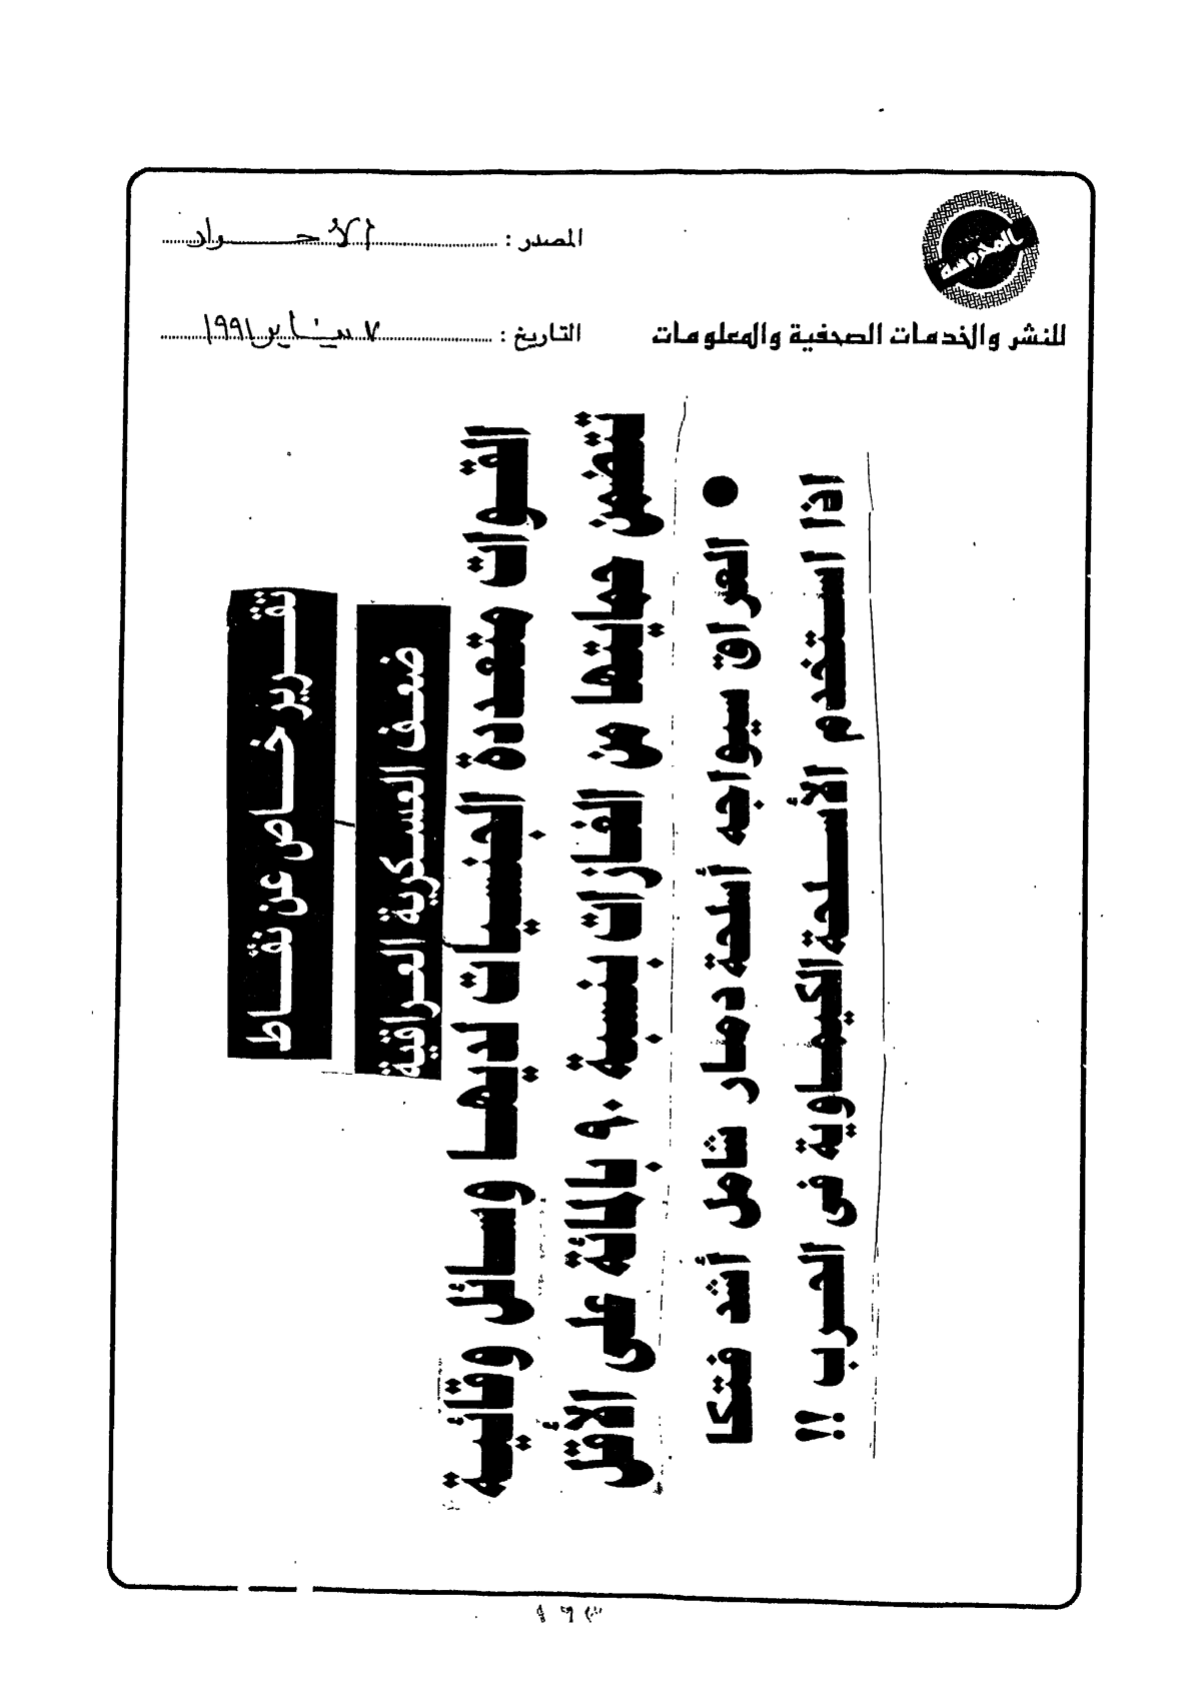 المحروسة
المصدر : الأحرار
للنشر والخدمات الصحفية والمعلومات
التاريخ : ٧ يناير ١٩٩١
تقرير خاص عن نقاط
ضعف العسكرية العراقية
القوات متعددة الجنسيات لديها وسائل وقائية
تتضمن حمايتها من الغازات بنسبة ٩٠ بالمائة على الأقل
● العراق سيواجه أسلحة دمار شامل أشد فتكا
اذا استخدم الأسلحة الكيماوية فى الحرب !!